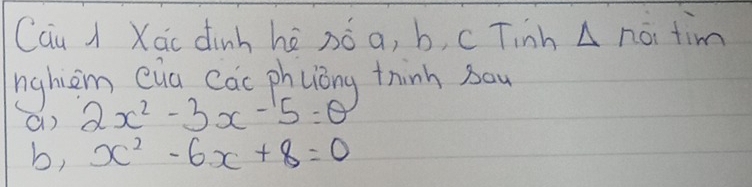 Câu 1 Xác định hê số a, b, c Tính Δ nồi tìm
nghiêm của các phương trình sau
a, 2x² - 3x - 5 = 0
b, x² - 6x + 8 = 0